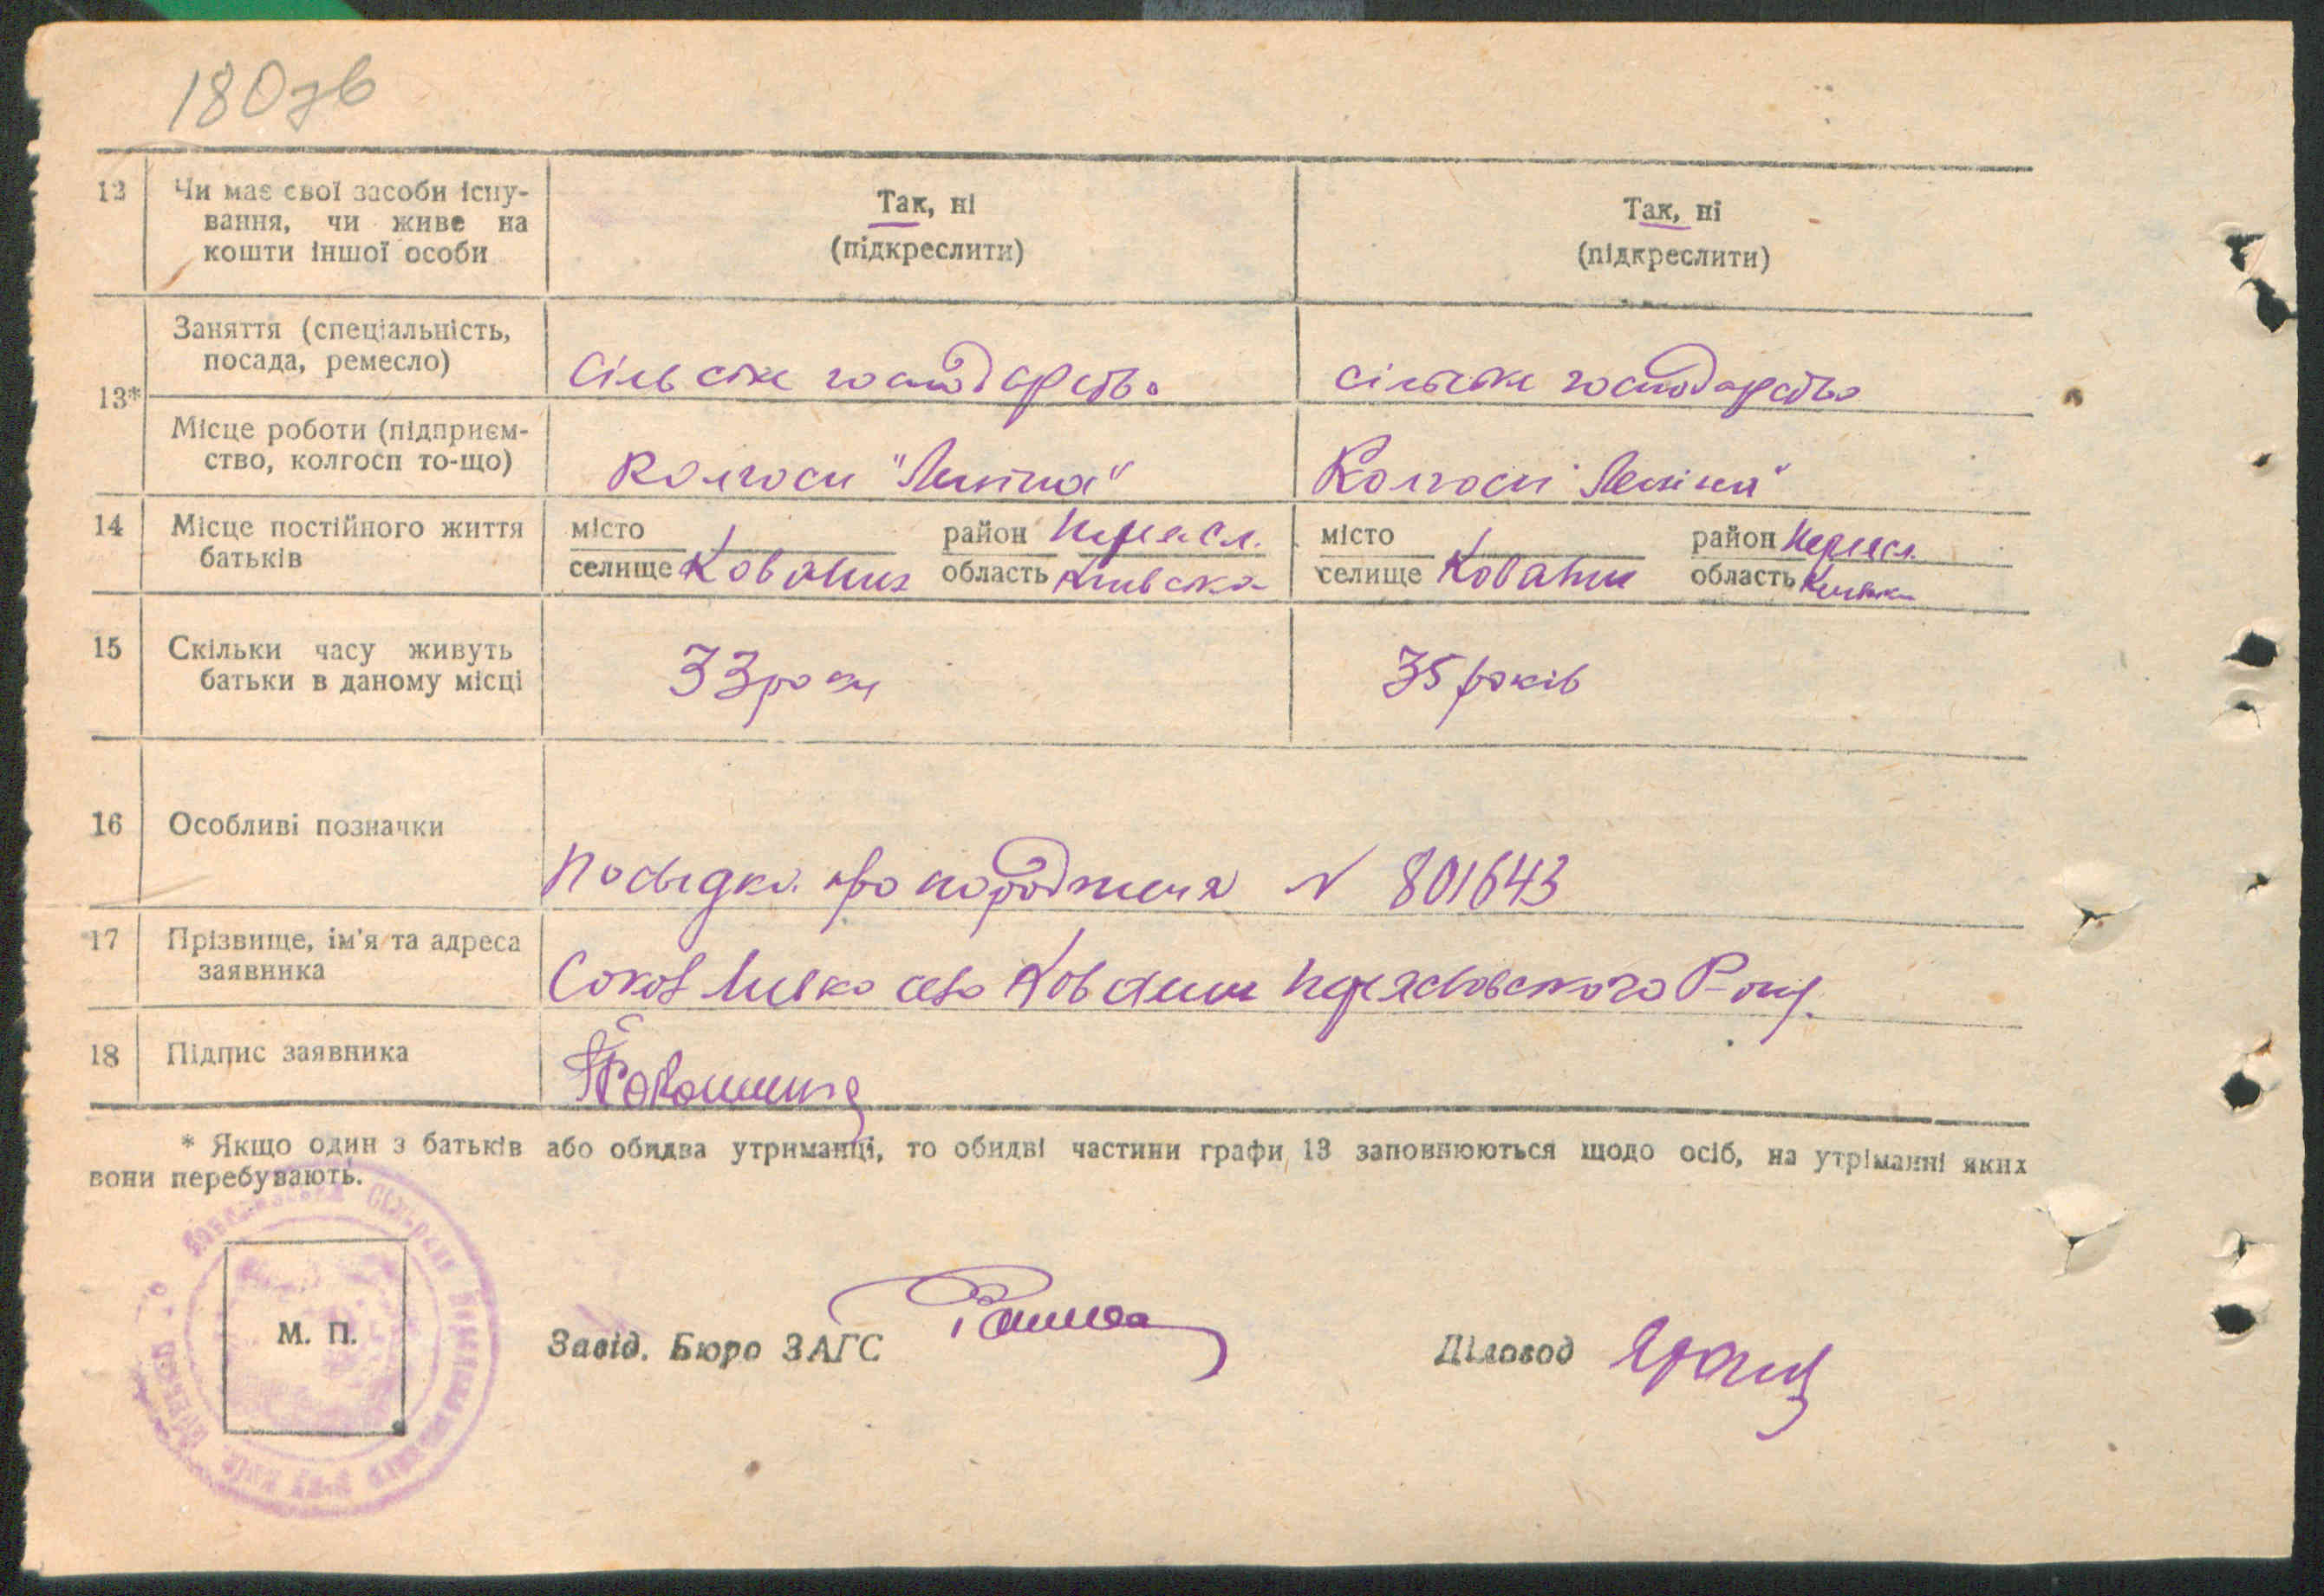 180зв
12 Чи має свої засоби існу-
вання, чи живе на
кошти іншої особи
Так, ні
(підкреслити)
Так, ні
(підкреслити)
13*
Заняття (спеціальність,
посада, ремесло)
сільське господарство
сільське господарство
Місце роботи (підприєм-
ство, колгосп то-що)
Колгосп "Леніна"
Колгосп "Леніна"
14 Місце постійного життя
батьків
місто
район Переясл.
селище Ковалин
область Київська
місто
район Переясл.
селище Ковалин
область Київська
15 Скільки часу живуть
батьки в даному місці
33 роки
35 років
16 Особливі позначки
Посвідка про народження № 801643
17 Прізвище, ім'я та адреса
заявника
село Ковалин Переяславського Р-ону.
18 Підпис заявника
* Якщо один з батьків або обидва утриманці, то обидві частини графи 13 заповнюються щодо осіб, на утріманні яких
вони перебувають.
М. П.
Завід. Бюро ЗАГС
Діловод